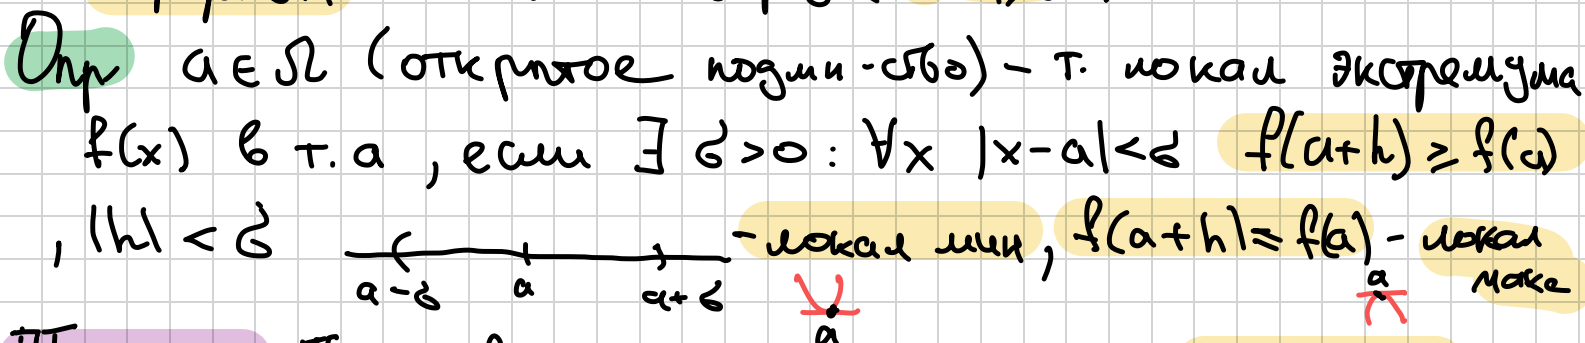 Опр a ∈ Ω (открытое подмн-ство) – т. локал экстремума
f(x) в т. a, если ∃ δ>0 : ∀x |x-a|<δ f(a+h) ≥ f(a)
, |h| < δ - локал мин, f(a+h) ≤ f(a) - локал
макс
a-δ a a+δ a a